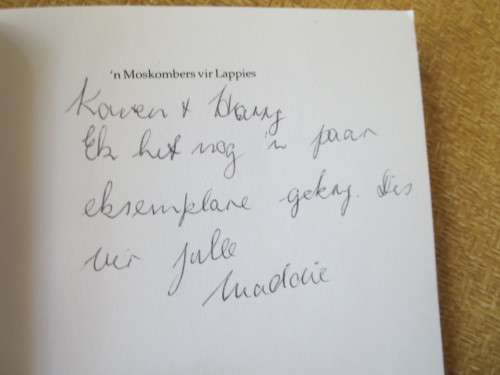 'n Moskombers vir Lappies
Karen + Harry
Ek het nog 'n paar
eksemplare gekry. Dis
vir julle
Maddie